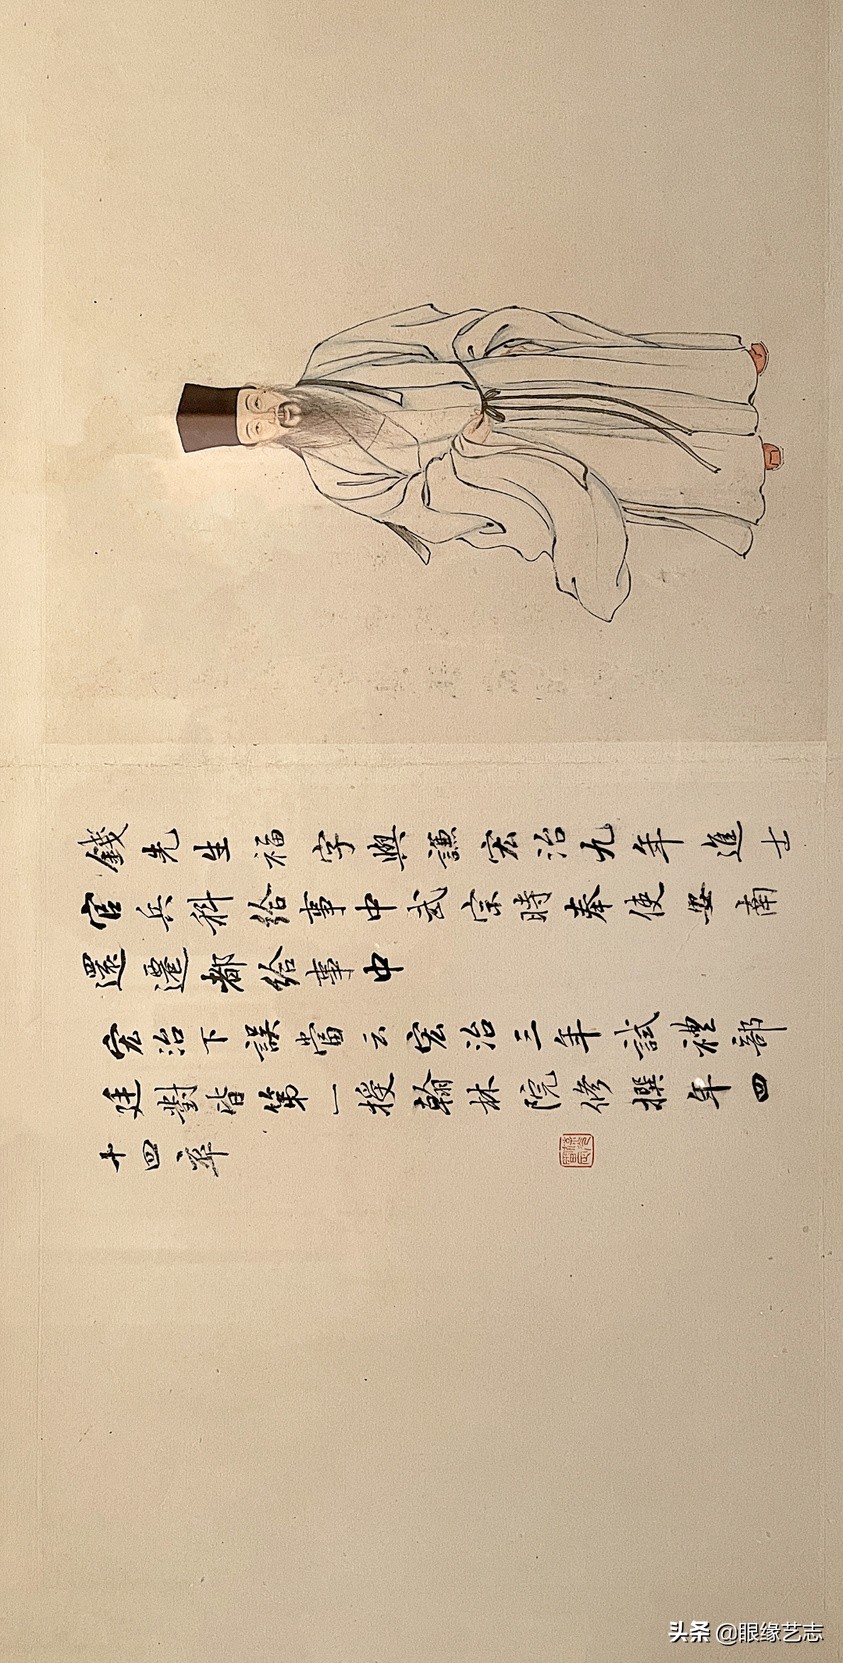 錢先生福字與謙宏治九年進士
官兵科給事中武宗時奉使安南
還遷都給事中
宏治下誤當云宏治三年試禮部
廷對皆第一授翰林院修撰年四
十四卒
头条 @眼缘艺志